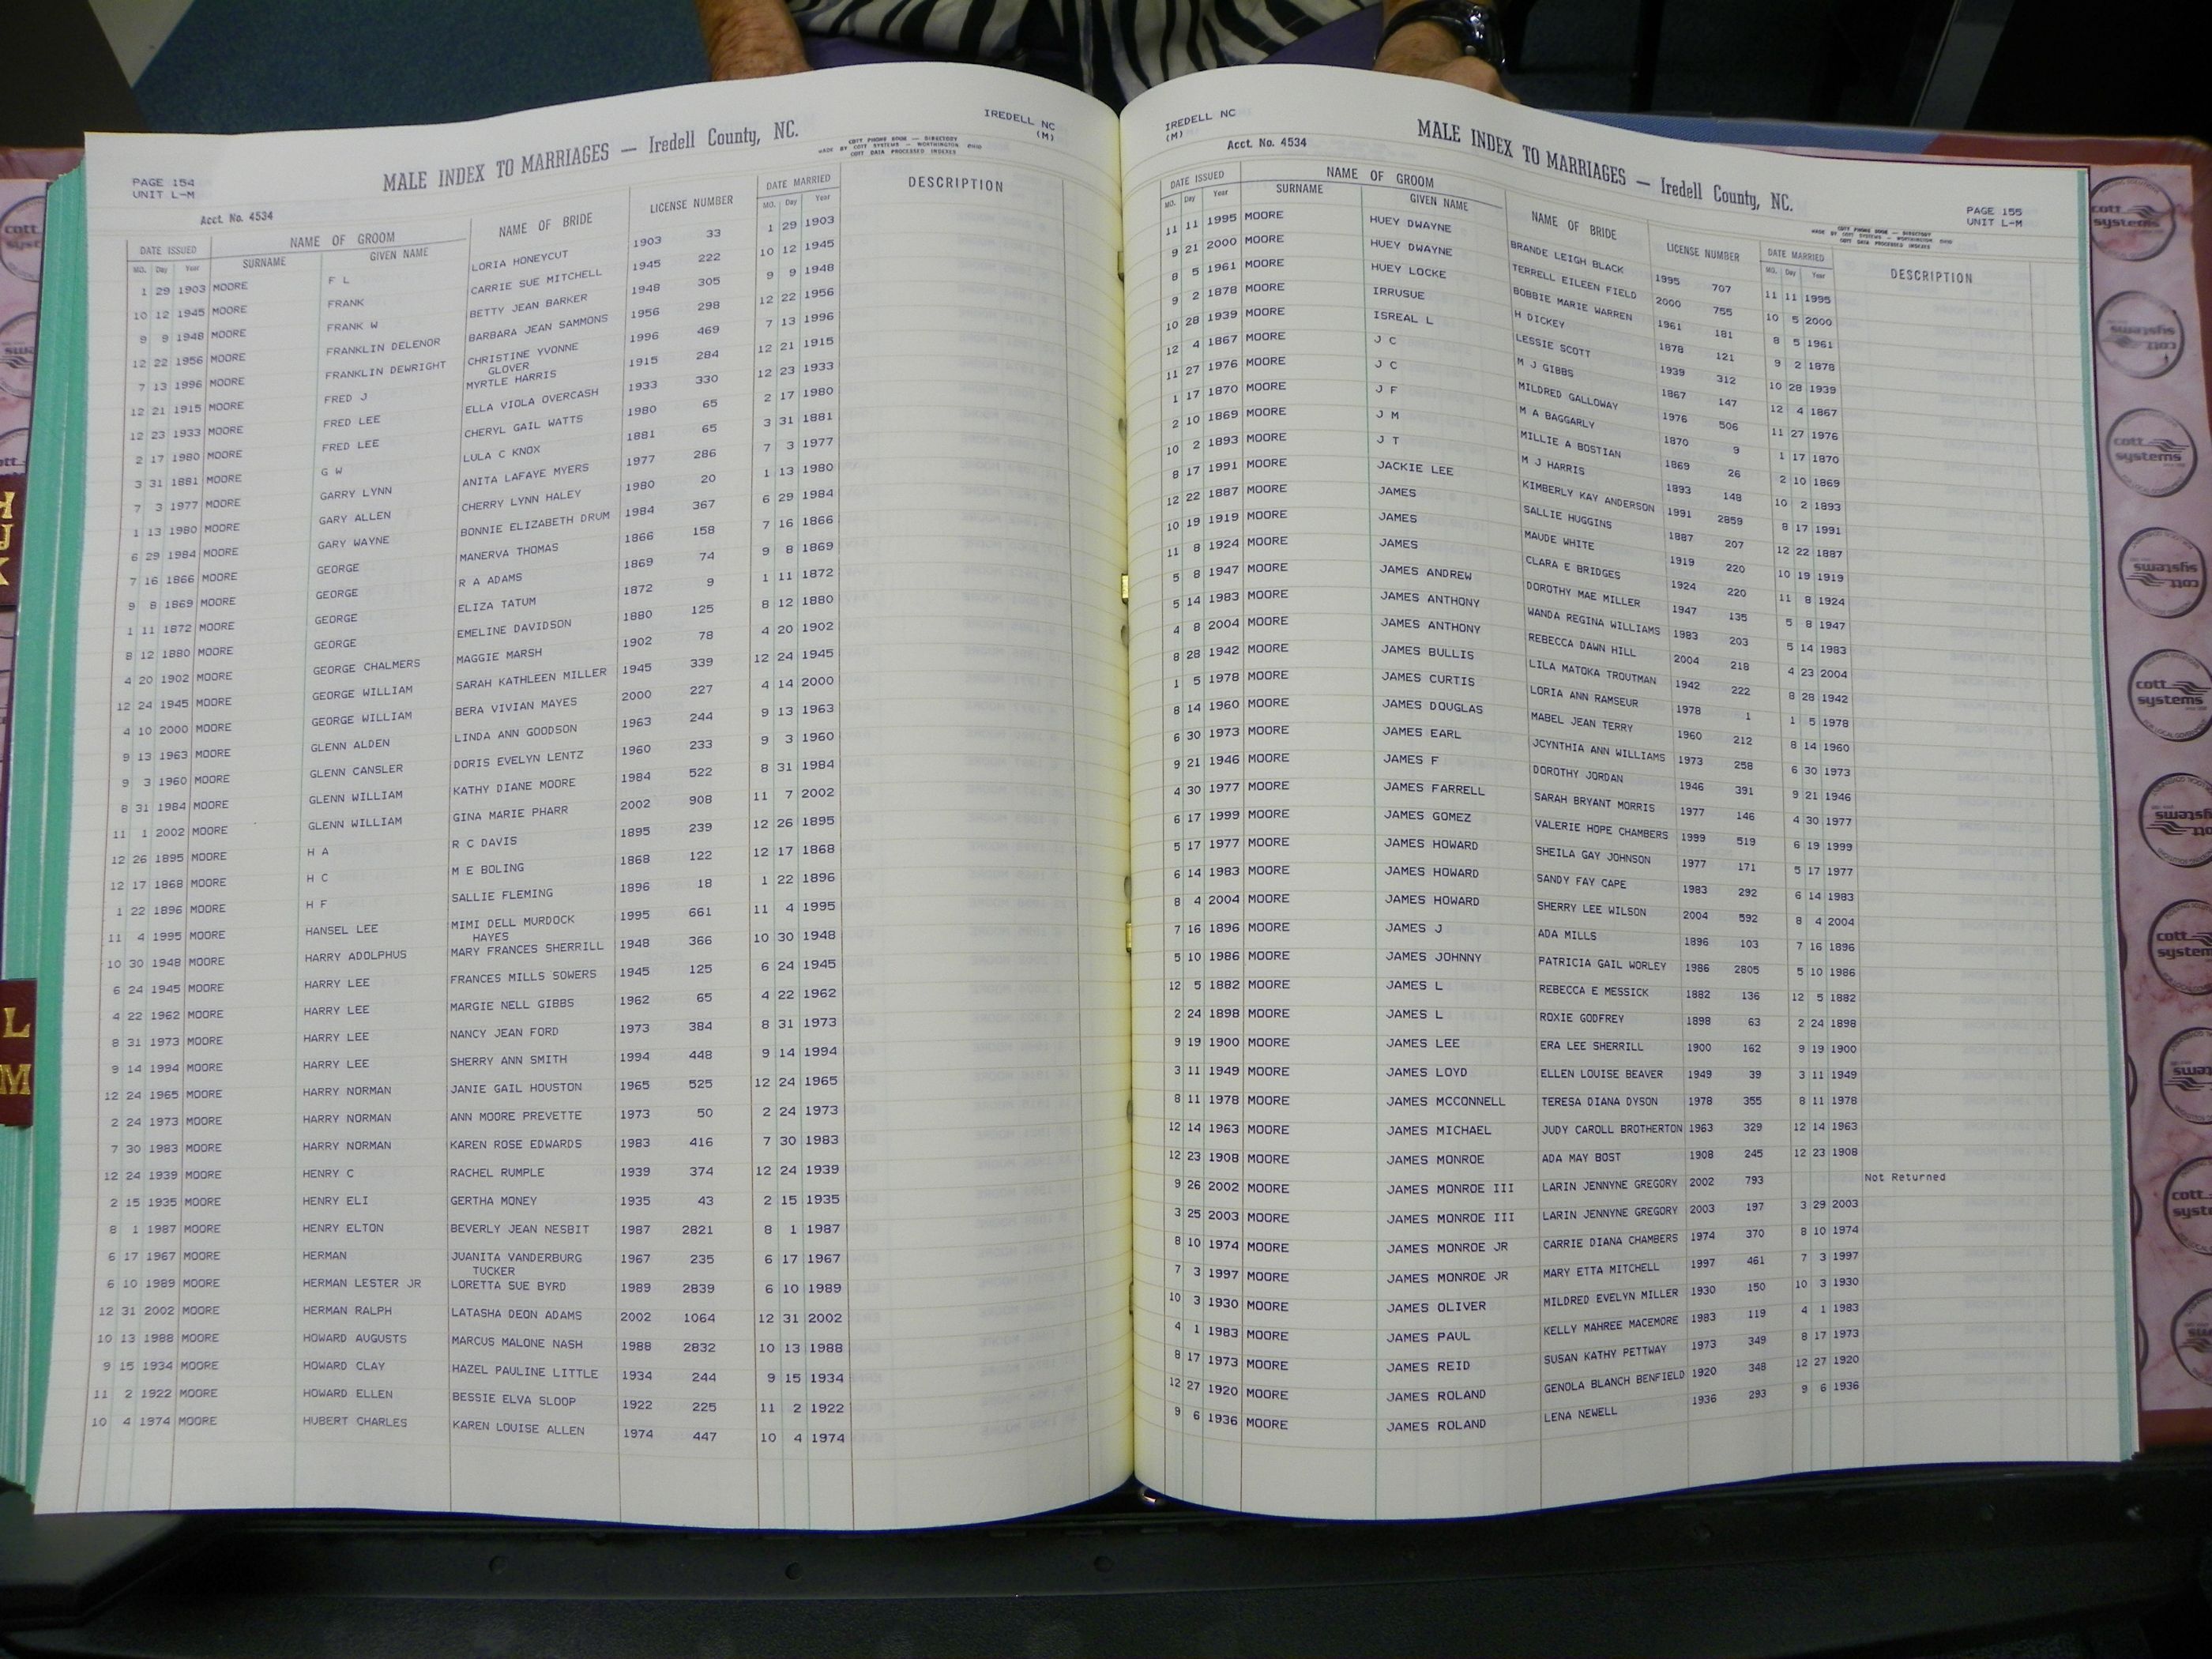 PAGE 154
UNIT L-M
MALE INDEX TO MARRIAGES — Iredell County, NC.
IREDELL NC
(M)
COTT PHONE BOOK — DIRECTORY
MADE BY COTT SYSTEMS — WORTHINGTON OHIO
COTT DATA PROCESSED INDEXES
Acct. No. 4534
DATE ISSUED NAME OF GROOM NAME OF BRIDE LICENSE NUMBER DATE MARRIED DESCRIPTION
MO. Day Year SURNAME GIVEN NAME MO. Day Year
1 29 1903 MOORE F L LORIA HONEYCUT 1903 33 1 29 1903
10 12 1945 MOORE FRANK CARRIE SUE MITCHELL 1945 222 10 12 1945
9 9 1948 MOORE FRANK W BETTY JEAN BARKER 1948 305 9 9 1948
12 22 1956 MOORE FRANKLIN DELENOR BARBARA JEAN SAMMONS 1956 298 12 22 1956
7 13 1996 MOORE FRANKLIN DEWRIGHT CHRISTINE YVONNE 1996 469 7 13 1996
GLOVER
12 21 1915 MOORE FRED J MYRTLE HARRIS 1915 284 12 21 1915
12 23 1933 MOORE FRED LEE ELLA VIOLA OVERCASH 1933 330 12 23 1933
2 17 1980 MOORE FRED LEE CHERYL GAIL WATTS 1980 65 2 17 1980
3 31 1881 MOORE G W LULA C KNOX 1881 65 3 31 1881
7 3 1977 MOORE GARRY LYNN ANITA LAFAYE MYERS 1977 286 7 3 1977
1 13 1980 MOORE GARY ALLEN CHERRY LYNN HALEY 1980 20 1 13 1980
6 29 1984 MOORE GARY WAYNE BONNIE ELIZABETH DRUM 1984 367 6 29 1984
7 16 1866 MOORE GEORGE MANERVA THOMAS 1866 158 7 16 1866
9 8 1869 MOORE GEORGE R A ADAMS 1869 74 9 8 1869
1 11 1872 MOORE GEORGE ELIZA TATUM 1872 9 1 11 1872
8 12 1880 MOORE GEORGE EMELINE DAVIDSON 1880 125 8 12 1880
4 20 1902 MOORE GEORGE CHALMERS MAGGIE MARSH 1902 78 4 20 1902
12 24 1945 MOORE GEORGE WILLIAM SARAH KATHLEEN MILLER 1945 339 12 24 1945
4 10 2000 MOORE GEORGE WILLIAM BERA VIVIAN MAYES 2000 227 4 14 2000
9 13 1963 MOORE GLENN ALDEN LINDA ANN GOODSON 1963 244 9 13 1963
9 3 1960 MOORE GLENN CANSLER DORIS EVELYN LENTZ 1960 233 9 3 1960
8 31 1984 MOORE GLENN WILLIAM KATHY DIANE MOORE 1984 522 8 31 1984
11 1 2002 MOORE GLENN WILLIAM GINA MARIE PHARR 2002 908 11 7 2002
12 26 1895 MOORE H A R C DAVIS 1895 239 12 26 1895
12 17 1868 MOORE H C M E BOLING 1868 122 12 17 1868
1 22 1896 MOORE H F SALLIE FLEMING 1896 18 1 22 1896
11 4 1995 MOORE HANSEL LEE MIMI DELL MURDOCK 1995 661 11 4 1995
HAYES
10 30 1948 MOORE HARRY ADOLPHUS MARY FRANCES SHERRILL 1948 366 10 30 1948
6 24 1945 MOORE HARRY LEE FRANCES MILLS SOWERS 1945 125 6 24 1945
4 22 1962 MOORE HARRY LEE MARGIE NELL GIBBS 1962 65 4 22 1962
8 31 1973 MOORE HARRY LEE NANCY JEAN FORD 1973 384 8 31 1973
9 14 1994 MOORE HARRY LEE SHERRY ANN SMITH 1994 448 9 14 1994
12 24 1965 MOORE HARRY NORMAN JANIE GAIL HOUSTON 1965 525 12 24 1965
2 24 1973 MOORE HARRY NORMAN ANN MOORE PREVETTE 1973 50 2 24 1973
7 30 1983 MOORE HARRY NORMAN KAREN ROSE EDWARDS 1983 416 7 30 1983
12 24 1939 MOORE HENRY C RACHEL RUMPLE 1939 374 12 24 1939
2 15 1935 MOORE HENRY ELI GERTHA MONEY 1935 43 2 15 1935
8 1 1987 MOORE HENRY ELTON BEVERLY JEAN NESBIT 1987 2821 8 1 1987
6 17 1967 MOORE HERMAN JUANITA VANDERBURG 1967 235 6 17 1967
TUCKER
6 10 1989 MOORE HERMAN LESTER JR LORETTA SUE BYRD 1989 2839 6 10 1989
12 31 2002 MOORE HERMAN RALPH LATASHA DEON ADAMS 2002 1064 12 31 2002
10 13 1988 MOORE HOWARD AUGUSTS MARCUS MALONE NASH 1988 2832 10 13 1988
9 15 1934 MOORE HOWARD CLAY HAZEL PAULINE LITTLE 1934 244 9 15 1934
11 2 1922 MOORE HOWARD ELLEN BESSIE ELVA SLOOP 1922 225 11 2 1922
10 4 1974 MOORE HUBERT CHARLES KAREN LOUISE ALLEN 1974 447 10 4 1974
IREDELL NC
(M)
Acct. No. 4534
MALE INDEX TO MARRIAGES — Iredell County, NC.
PAGE 155
UNIT L-M
MADE BY COTT SYSTEMS — WORTHINGTON OHIO
COTT DATA PROCESSED INDEXES
DATE ISSUED NAME OF GROOM NAME OF BRIDE LICENSE NUMBER DATE MARRIED DESCRIPTION
MO. Day Year SURNAME GIVEN NAME MO. Day Year
11 11 1995 MOORE HUEY DWAYNE BRANDE LEIGH BLACK 1995 707 11 11 1995
9 21 2000 MOORE HUEY DWAYNE TERRELL EILEEN FIELD 2000 755 10 5 2000
8 5 1961 MOORE HUEY LOCKE BOBBIE MARIE WARREN 1961 181 8 5 1961
9 2 1878 MOORE IRRUSUE H DICKEY 1878 121 9 2 1878
10 28 1939 MOORE ISREAL L LESSIE SCOTT 1939 312 10 28 1939
12 4 1867 MOORE J C M J GIBBS 1867 147 12 4 1867
11 27 1976 MOORE J C MILDRED GALLOWAY 1976 506 11 27 1976
1 17 1870 MOORE J F M A BAGGARLY 1870 9 1 17 1870
2 10 1869 MOORE J M MILLIE A BOSTIAN 1869 26 2 10 1869
10 2 1893 MOORE J T M J HARRIS 1893 148 10 2 1893
8 17 1991 MOORE JACKIE LEE KIMBERLY KAY ANDERSON 1991 2859 8 17 1991
12 22 1887 MOORE JAMES SALLIE HUGGINS 1887 207 12 22 1887
10 19 1919 MOORE JAMES MAUDE WHITE 1919 220 10 19 1919
11 8 1924 MOORE JAMES CLARA E BRIDGES 1924 220 11 8 1924
5 8 1947 MOORE JAMES ANDREW DOROTHY MAE MILLER 1947 135 5 8 1947
5 14 1983 MOORE JAMES ANTHONY WANDA REGINA WILLIAMS 1983 203 5 14 1983
4 8 2004 MOORE JAMES ANTHONY REBECCA DAWN HILL 2004 218 4 23 2004
8 28 1942 MOORE JAMES BULLIS LILA MATOKA TROUTMAN 1942 222 8 28 1942
1 5 1978 MOORE JAMES CURTIS LORIA ANN RAMSEUR 1978 1 1 5 1978
8 14 1960 MOORE JAMES DOUGLAS MABEL JEAN TERRY 1960 212 8 14 1960
6 30 1973 MOORE JAMES EARL JCYNTHIA ANN WILLIAMS 1973 258 6 30 1973
9 21 1946 MOORE JAMES F DOROTHY JORDAN 1946 391 9 21 1946
4 30 1977 MOORE JAMES FARRELL SARAH BRYANT MORRIS 1977 146 4 30 1977
6 17 1999 MOORE JAMES GOMEZ VALERIE HOPE CHAMBERS 1999 519 6 19 1999
5 17 1977 MOORE JAMES HOWARD SHEILA GAY JOHNSON 1977 171 5 17 1977
6 14 1983 MOORE JAMES HOWARD SANDY FAY CAPE 1983 292 6 14 1983
8 4 2004 MOORE JAMES HOWARD SHERRY LEE WILSON 2004 592 8 4 2004
7 16 1896 MOORE JAMES J ADA MILLS 1896 103 7 16 1896
5 10 1986 MOORE JAMES JOHNNY PATRICIA GAIL WORLEY 1986 2805 5 10 1986
12 5 1882 MOORE JAMES L REBECCA E MESSICK 1882 136 12 5 1882
2 24 1898 MOORE JAMES L ROXIE GODFREY 1898 63 2 24 1898
9 19 1900 MOORE JAMES LEE ERA LEE SHERRILL 1900 162 9 19 1900
3 11 1949 MOORE JAMES LOYD ELLEN LOUISE BEAVER 1949 39 3 11 1949
8 11 1978 MOORE JAMES MCCONNELL TERESA DIANA DYSON 1978 355 8 11 1978
12 14 1963 MOORE JAMES MICHAEL JUDY CAROLL BROTHERTON 1963 329 12 14 1963
12 23 1908 MOORE JAMES MONROE ADA MAY BOST 1908 245 12 23 1908
9 26 2002 MOORE JAMES MONROE III LARIN JENNYNE GREGORY 2002 793 Not Returned
3 25 2003 MOORE JAMES MONROE III LARIN JENNYNE GREGORY 2003 197 3 29 2003
8 10 1974 MOORE JAMES MONROE JR CARRIE DIANA CHAMBERS 1974 370 8 10 1974
7 3 1997 MOORE JAMES MONROE JR MARY ETTA MITCHELL 1997 461 7 3 1997
10 3 1930 MOORE JAMES OLIVER MILDRED EVELYN MILLER 1930 150 10 3 1930
4 1 1983 MOORE JAMES PAUL KELLY MAHREE MACEMORE 1983 119 4 1 1983
8 17 1973 MOORE JAMES REID SUSAN KATHY PETTWAY 1973 349 8 17 1973
12 27 1920 MOORE JAMES ROLAND GENOLA BLANCH BENFIELD 1920 348 12 27 1920
9 6 1936 MOORE JAMES ROLAND LENA NEWELL 1936 293 9 6 1936
L
M
cott
systems